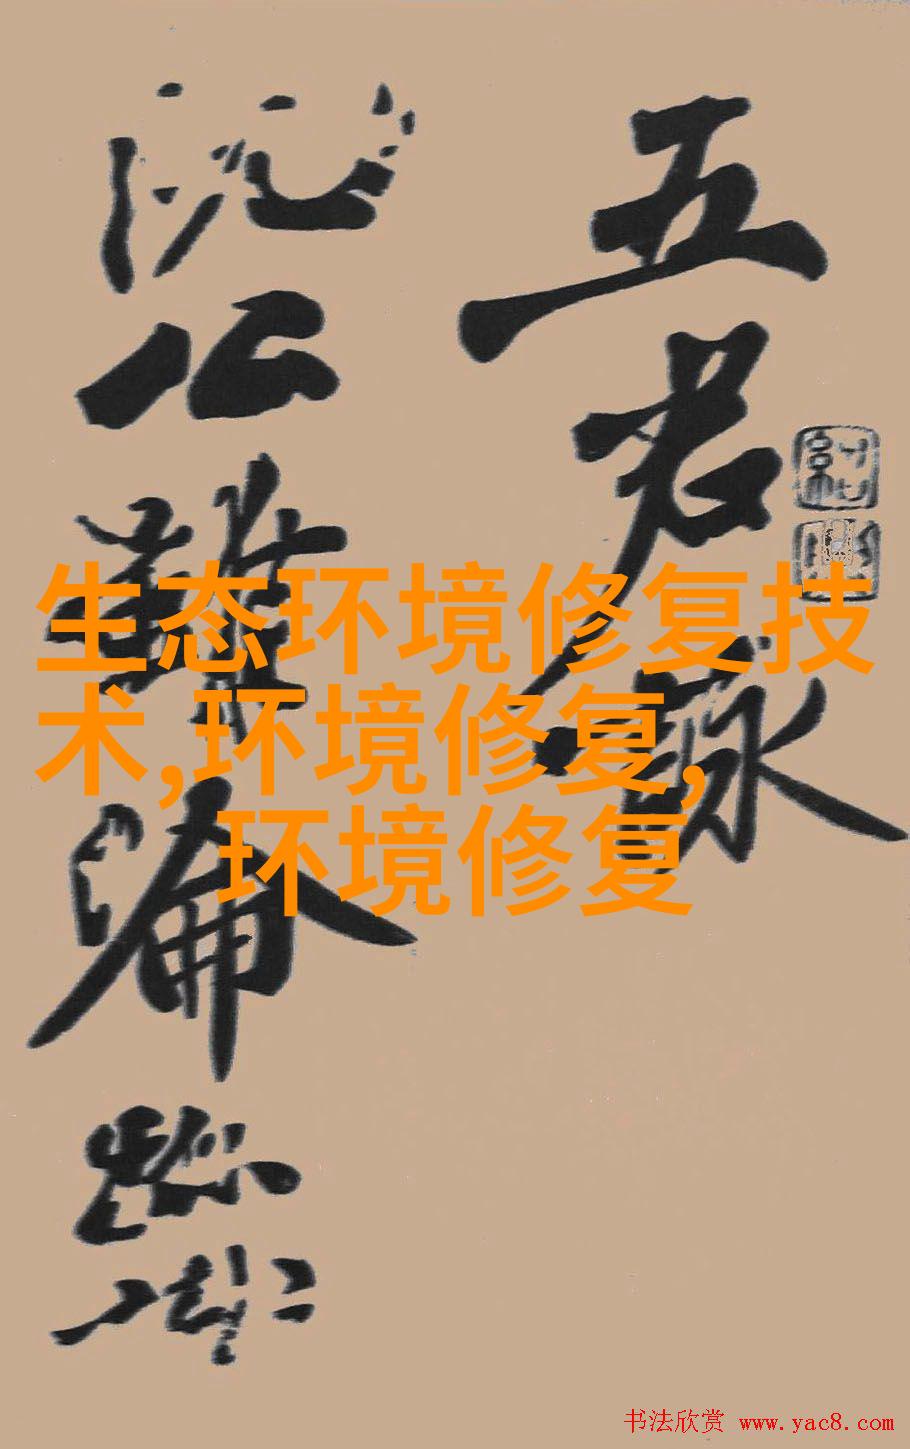 五君詠
阮公雖淪跡
生态环境修复技
术,环境修复,
环境修复
书法欣赏 www.yac8.com